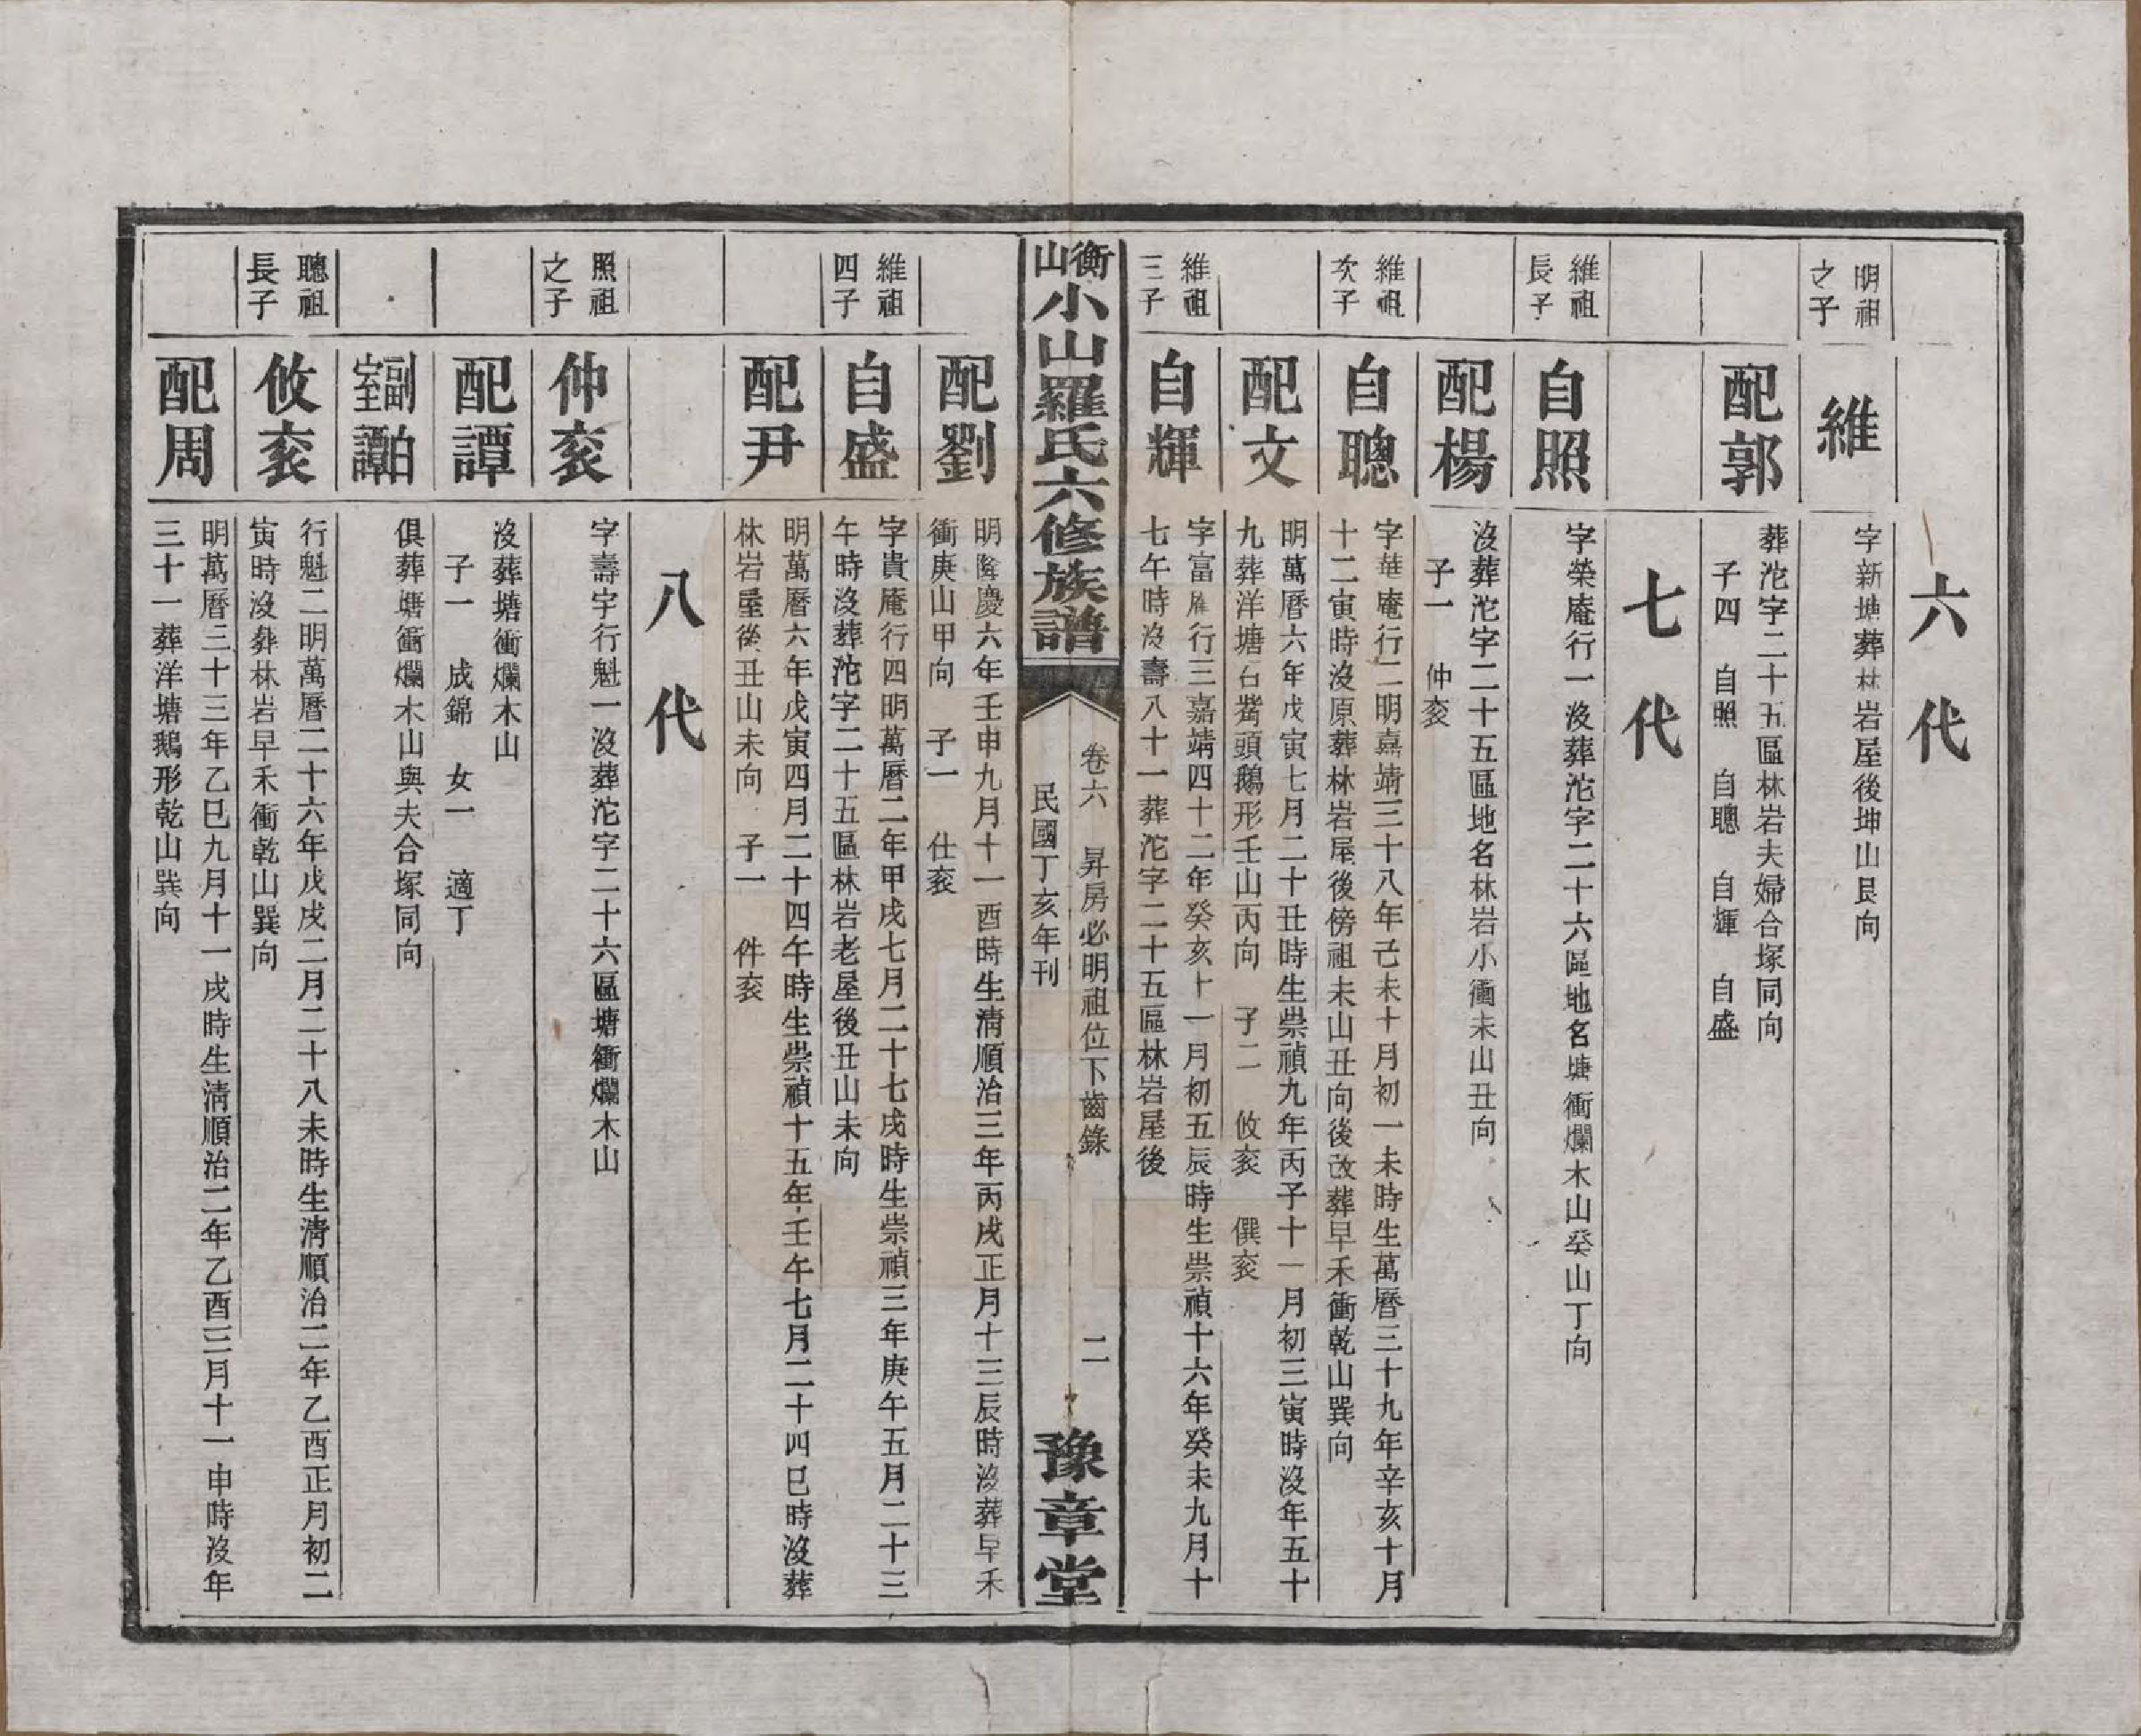 六代
明祖之子
維
字新塘葬林岩屋後坤山艮向
配郭
葬沱字二十五區林岩夫婦合塚同向
子四 自照 自聰 自輝 自盛
七代
維祖長子
自照
字榮庵行一沒葬沱字二十六區地名塘衝爛木山癸山丁向
配楊
沒葬沱字二十五區地名林岩小衝未山丑向
子一 仲衮
維祖次子
自聰
字華庵行二明嘉靖三十八年己未十月初一未時生萬曆三十九年辛亥十月
十二寅時沒原葬林岩屋後傍祖未山丑向後改葬早禾衝乾山巽向
配文
明萬曆六年戊寅七月二十丑時生崇禎九年丙子十一月初三寅時沒年五十
九葬洋塘石觜頭鵝形壬山丙向 子二 攸衮 僎衮
維祖三子
自輝
字富庵行三嘉靖四十二年癸亥十一月初五辰時生崇禎十六年癸未九月十
七午時沒壽八十一葬沱字二十五區林岩屋後
衡山小山羅氏六修族譜
卷六 昇房必明祖位下齒錄 二
民國丁亥年刊
豫章堂
配劉
明隆慶六年壬申九月十一酉時生清順治三年丙戌正月十三辰時沒葬早禾
衝庚山甲向 子一 仕衮
維祖四子
自盛
字貴庵行四明萬曆二年甲戌七月二十七戌時生崇禎三年庚午五月二十三
午時沒葬沱字二十五區林岩老屋後丑山未向
配尹
明萬曆六年戊寅四月二十四午時生崇禎十五年壬午七月二十四巳時沒葬
林岩屋後丑山未向 子一 件衮
八代
照祖之子
仲衮
字壽宇行魁一沒葬沱字二十六區塘衝爛木山
配譚
沒葬塘衝爛木山
子一 成錦 女一 適丁
副室柏譚
俱葬塘衝爛木山與夫合塚同向
聰祖長子
攸衮
行魁二明萬曆二十六年戊戌二月二十八未時生清順治二年乙酉正月初二
寅時沒葬林岩早禾衝乾山巽向
配周
明萬曆三十三年乙巳九月十一戌時生清順治二年乙酉三月十一申時沒年
三十一葬洋塘鵝形乾山巽向